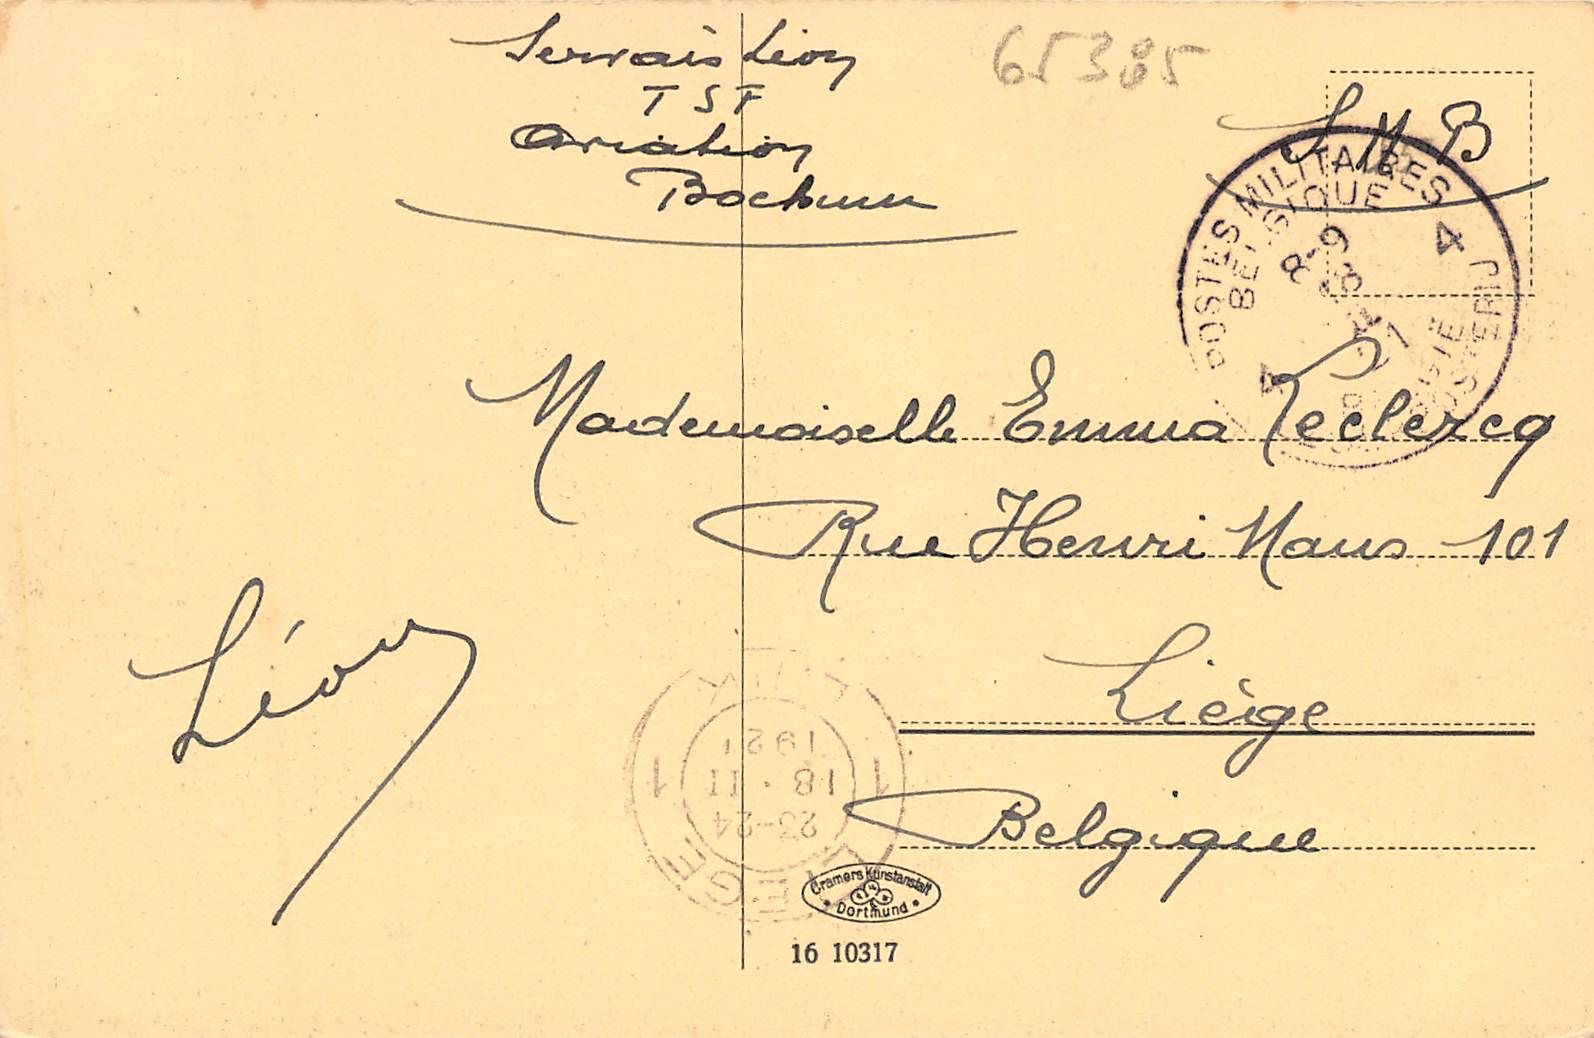 Servais Léon
TSF
Aviation
Bochum
65385
S M B
POSTES MILITAIRES
BELGIQUE
4
4
Mademoiselle Emma Leclercq
Rue Henri Maus 101
Liège
Belgique
Léon
1921
18·II
23-24
1 1
LIÈGE
Cramers Kunstanstalt
Dortmund
16 10317